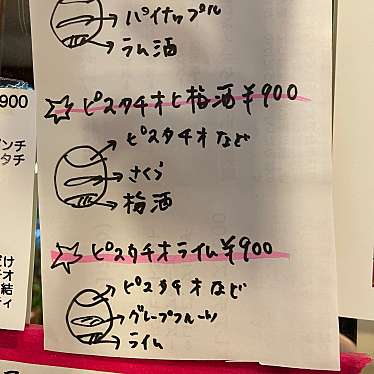 パイナップル
ラム酒
☆ピスタチオと梅酒¥900
ピスタチオなど
さくら
梅酒
☆ピスタチオライム¥900
ピスタチオなど
グレープフルーツ
ライム
900
ンチ
タチ
だけ
チオ
結
ティ